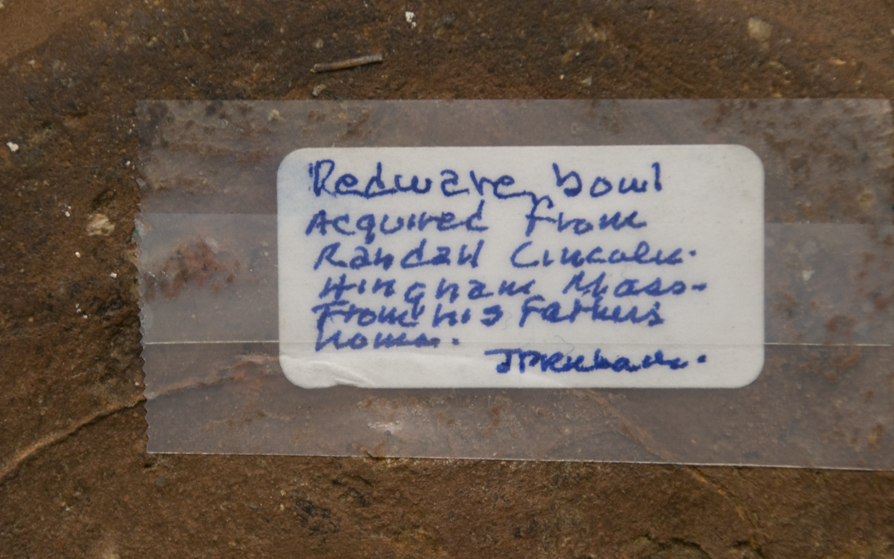 Redware bowl
Acquired from
Randall Lincoln.
Hingham Mass.
From his Fathers
home.